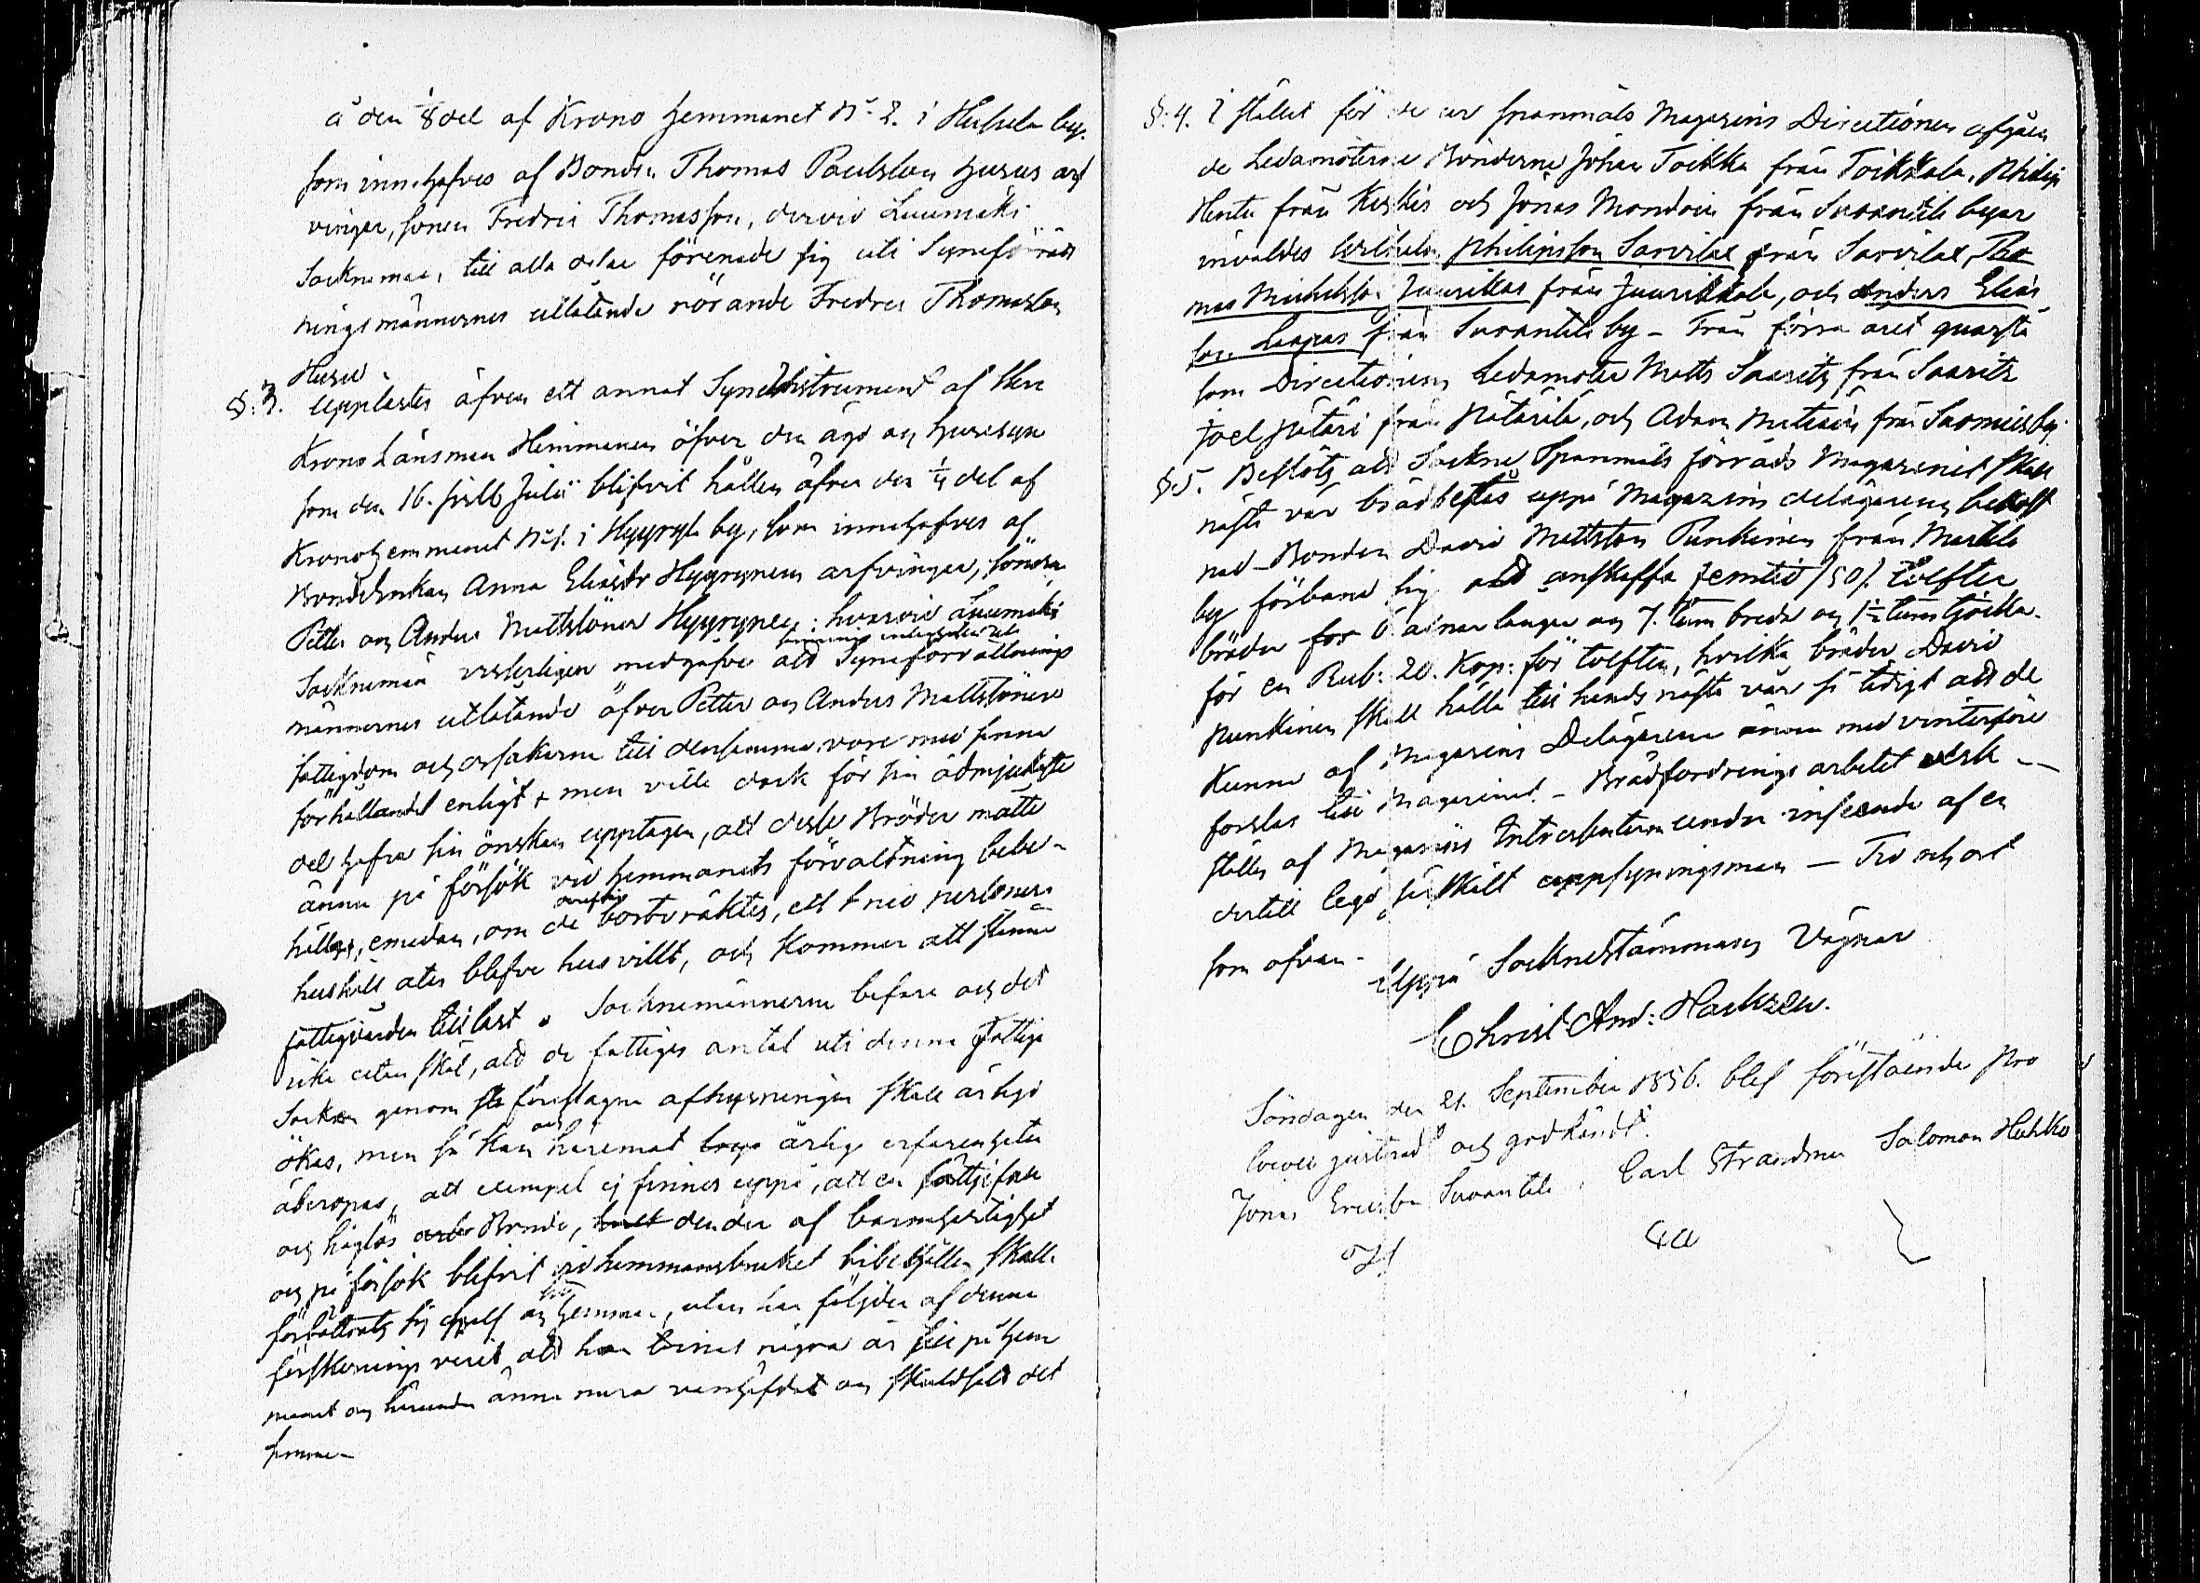 å den 1/8 del af Krono hemmanet No 2. i Husula by,
som innehafves af Bonden Thomas Paulsson Husus arf
vingar, sonen Fredric Thomasson, dervid Luumäki
Socknemän, till alla delar förenade sig uti Syneförrätt
ningsmännernes utlåtande rörande Fredric Thomasson
Husu.
§. 3. Upplästes äfven ett annat Syne Instrument af Herr
Krono Länsman Heimmanen öfver den ägo och husesyn
som den 16. sistl. Julii blifvit hållen öfver den 1/4 del af
Kronohemmanet No 1. i Hyyrylä by, som innehafves af
Bondeenkan Anna Eliædr Hyyrynens arfvingar, sönerne
Petter och Anders Mattssöner Hyyrynen; hvarvid Luumäki
Socknemän visserligen medgåfvo att Syneförrättnings
männernes utlåtande öfver Petter och Anders Mattssöners
fattigdom och orsakerne till densamma, vore med sanna
förhållandet enligt + men ville dock för sin ödmjukaste
del hafva sin önskan upptagen, att desse Bröder måtte
ännu på försök vid hemmanets förvaltning bebe-
hållas, emedan, om de bortvräktes, ett + nio personers
hushåll åter blefve husvillt, och kommer att falla
fattigvården till last. Socknemännerne befara och det
icke utan skäl, att de fattiges antal uti denna fattiga
Socken genom föreslagne afhysningar skall årligen
ökas, men så kan häremot årlige erfarenheter
åberopas, att exempel ej finnes uppå, att en fattig
och håglös Bonde, den der af barmhertighet
och på försök blifvit vid hemmansbruket bibehållen skulle
förbättrat sig sjelf och hemman, utan har följden af denna
förskoning varit att han tvinat några år till på hem
manet och härunder ännu mera vanhäfdat och skuldsatt det
samma –
§. 4. I stället för de ur Spanmåls Magasins Directionen afgåen
de Ledamöterne Bönderne Johan Toikka från Toikkala, Philip
Hentu från Keskis och Jonas Mondoin från Suoantila byar
invaldes Wilhelm Philipsson Sarvilax från Sarvilax, Tho
mas Michelsson Juurikas från Juurikkala, och Anders Elias
son Laapas från Suoantila by – Från förra året qvarstå
som Directionens Ledamöter Matts Saaritz från Saaritz
Joel Pätäri från Pätärilä, och Adam Mutiain från Suomiis by.
§. 5. Beslöts att Sockne Spanmåls förråds Magasinet skall
nästa vår brädbeslås uppå Magazins delägarens bekost
nad – Bonden David Mattsson Punkinen från Marttila
by förband sig att anskaffa femtio /50/. tolfter
bräder 6 alnar långa och 7. tum breda och 1 1/2 tum tjocka.
för en Rub: 20. Kop: för tolften, hvilka bräder David
Punkinen skall hålla till hands nästa vår så tidigt att de
kunna af Magasins Delägarene ännu med vinterföre
forslas till Magasinet. – Brädfordrings arbetet verk –
ställes af Magasins Intressenterne under inseende af en
dertill legd särskilt uppsyningsman – Tid och ort
som ofvan –
Uppå Sockenstämmans Vägnar
Christ. And: Hackzell.
Söndagen den 21. September 1856. blef förestående Pro
tocoll justerad och godkändt.
Jonas Ericsson Suoantila, Carl Strandman Salomon Huhko